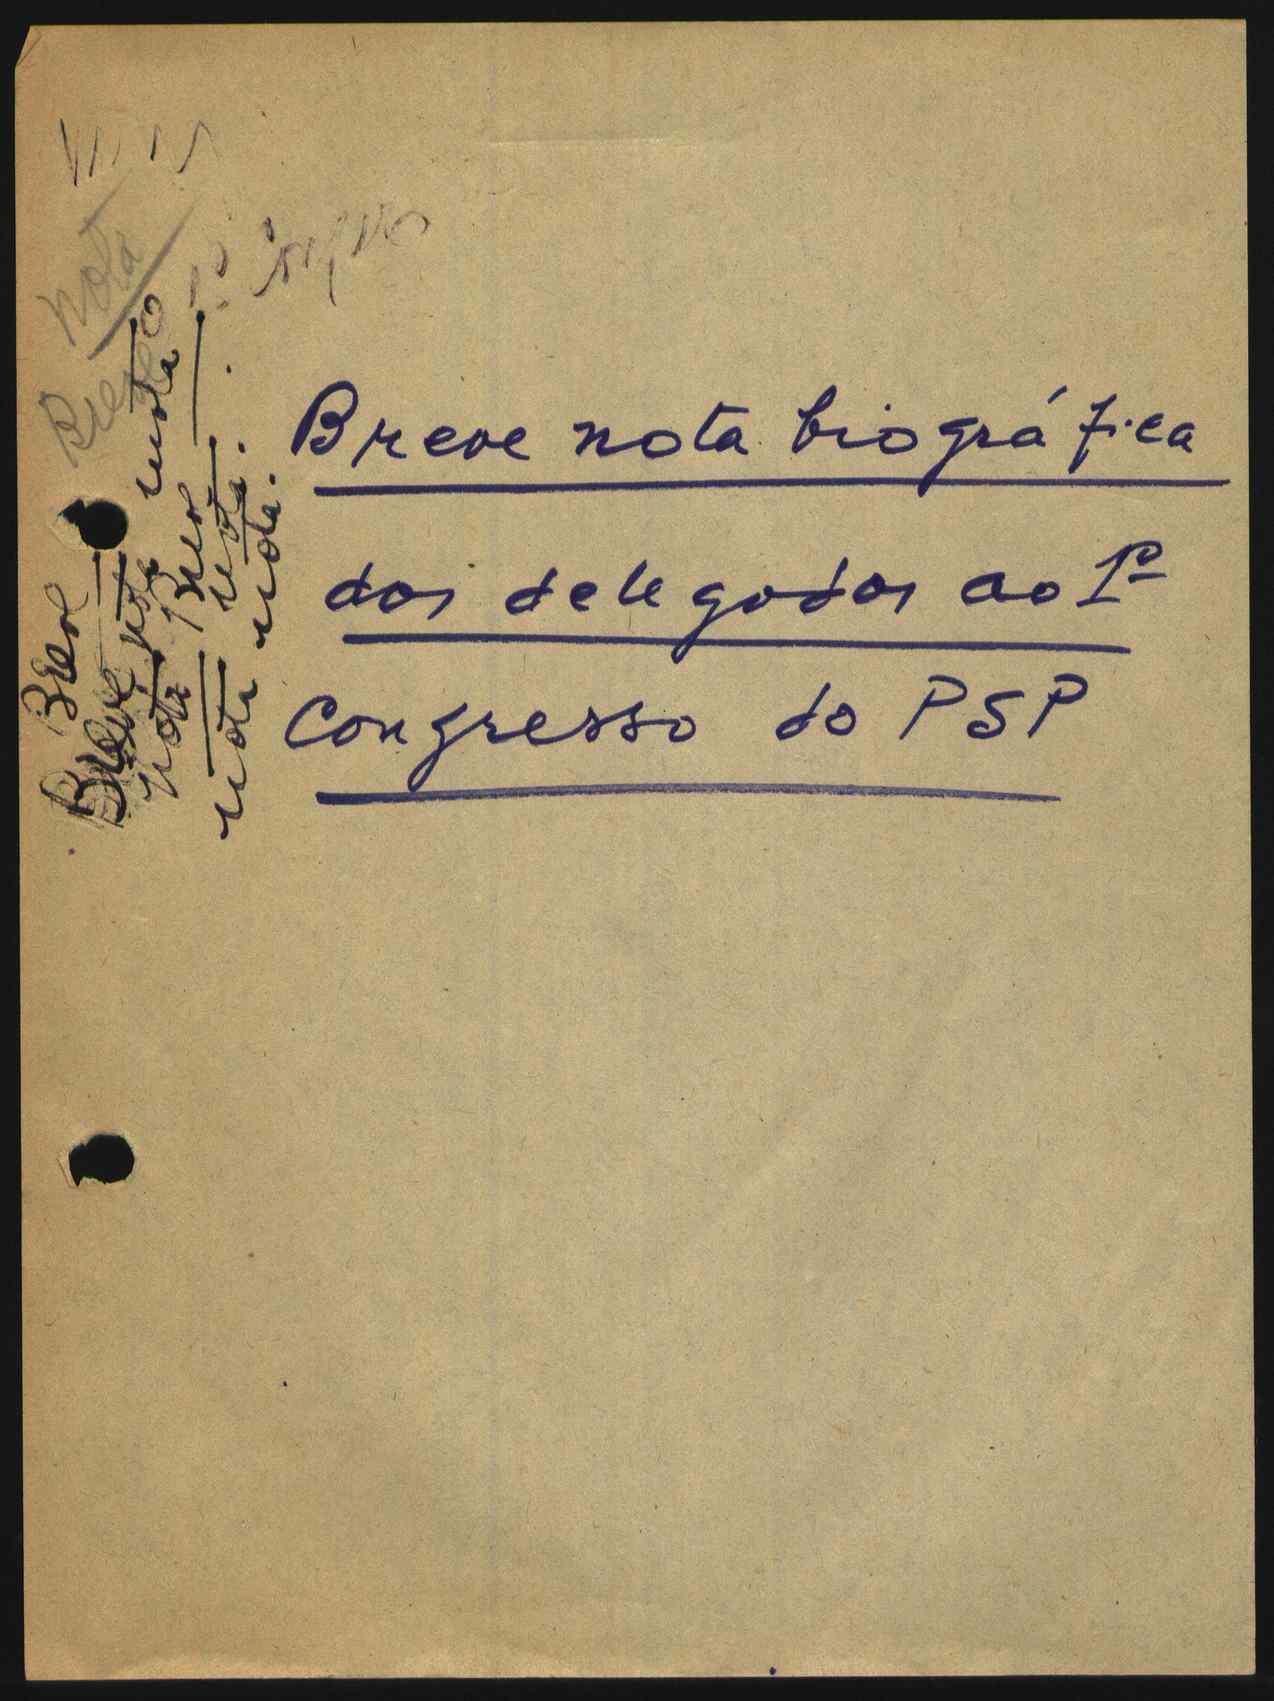 Breve nota biográfica
dos delegados ao 1º
Congresso do PSP
nota
Breve
nota
Breve
nota
Breve
nota
nota
nota
nota
nota